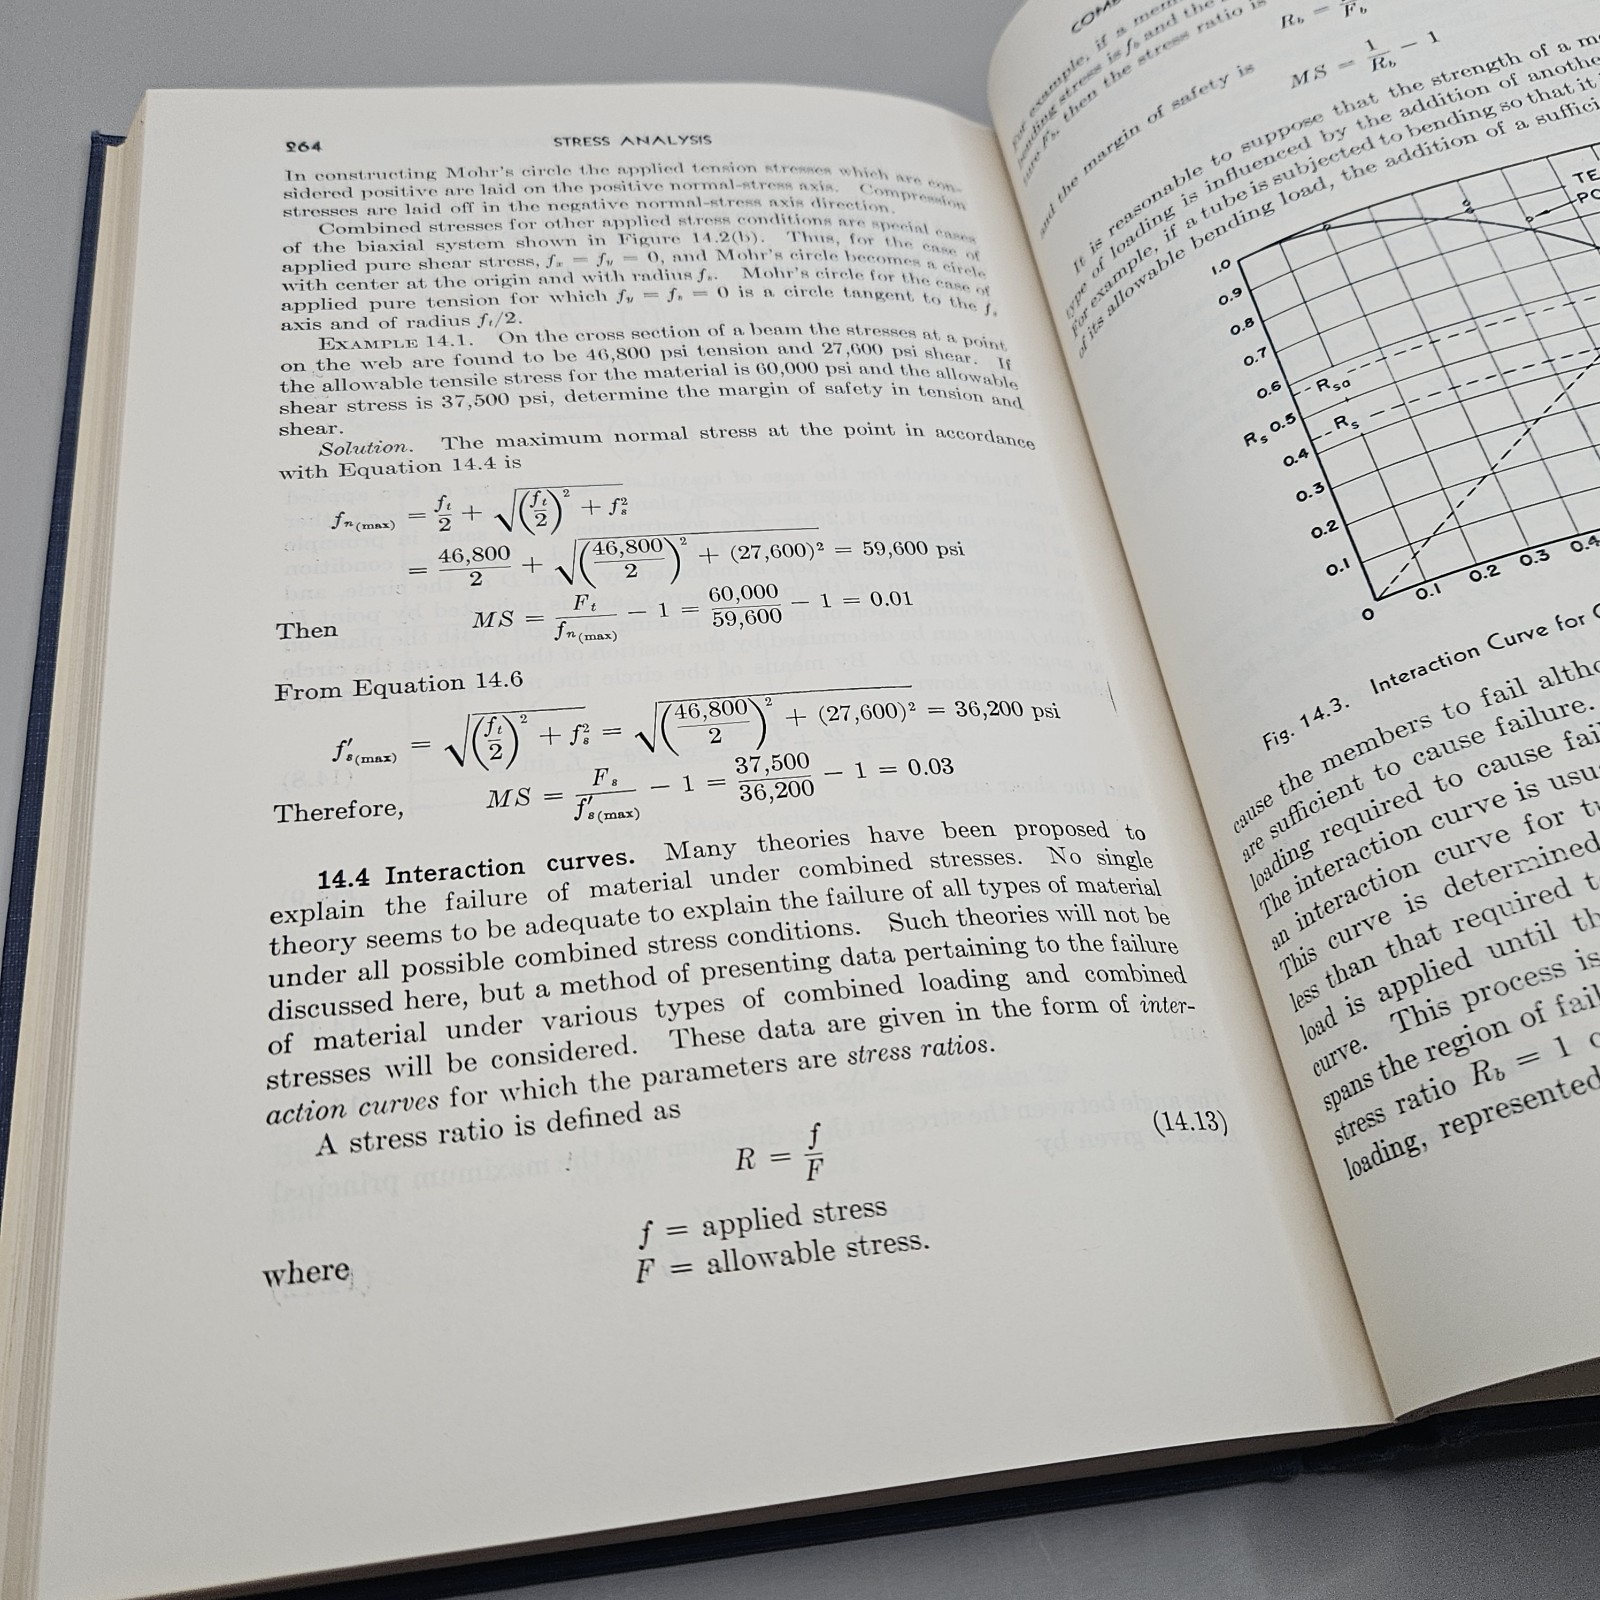 264
STRESS ANALYSIS
In constructing Mohr's circle the applied tension stresses which are con-
sidered positive are laid on the positive normal-stress axis. Compression
stresses are laid off in the negative normal-stress axis direction.
Combined stresses for other applied stress conditions are special cases
of the biaxial system shown in Figure 14.2(b). Thus, for the case of
applied pure shear stress, fₓ = fᵧ = 0, and Mohr's circle becomes a circle
with center at the origin and with radius fₛ. Mohr's circle for the case of
applied pure tension for which fᵧ = fₛ = 0 is a circle tangent to the fₛ
axis and of radius fₜ/2.
EXAMPLE 14.1. On the cross section of a beam the stresses at a point
on the web are found to be 46,800 psi tension and 27,600 psi shear. If
the allowable tensile stress for the material is 60,000 psi and the allowable
shear stress is 37,500 psi, determine the margin of safety in tension and
shear.
Solution. The maximum normal stress at the point in accordance
with Equation 14.4 is
fₙ(max) = fₜ/2 + √((fₜ/2)² + fₛ²)
= 46,800/2 + √((46,800/2)² + (27,600)²) = 59,600 psi
Then MS = Fₜ/fₙ(max) − 1 = 60,000/59,600 − 1 = 0.01
From Equation 14.6
f′ₛ(max) = √((fₜ/2)² + fₛ²) = √((46,800/2)² + (27,600)²) = 36,200 psi
Therefore, MS = Fₛ/f′ₛ(max) − 1 = 37,500/36,200 − 1 = 0.03
14.4 Interaction curves. Many theories have been proposed to
explain the failure of material under combined stresses. No single
theory seems to be adequate to explain the failure of all types of material
under all possible combined stress conditions. Such theories will not be
discussed here, but a method of presenting data pertaining to the failure
of material under various types of combined loading and combined
stresses will be considered. These data are given in the form of inter-
action curves for which the parameters are stress ratios.
A stress ratio is defined as
R = f/F (14.13)
f = applied stress
where F = allowable stress.
For example, if a
bending stress is f_b and the
F_b, then the stress ratio is
R_b = /F_b
and the margin of safety is
MS = 1/R_b − 1
It is reasonable to suppose that the strength of a
type of loading is influenced by the addition of
For example, if a tube is subjected to bending so that it
of its allowable bending load, the addition of a
1.0
0.9
0.8
0.7
0.6
Rₛₐ
Rₛ 0.5
Rₛ
0.4
0.3
0.2
0.1
0
0.1 0.2 0.3 0.4
Fig. 14.3. Interaction Curve for
cause the members to fail
are sufficient to cause failure.
loading required to cause
The interaction curve is
an interaction curve for
This curve is determined
less than that required
load is applied until
curve. This process is
spans the region of
stress ratio R_b = 1
loading, represented